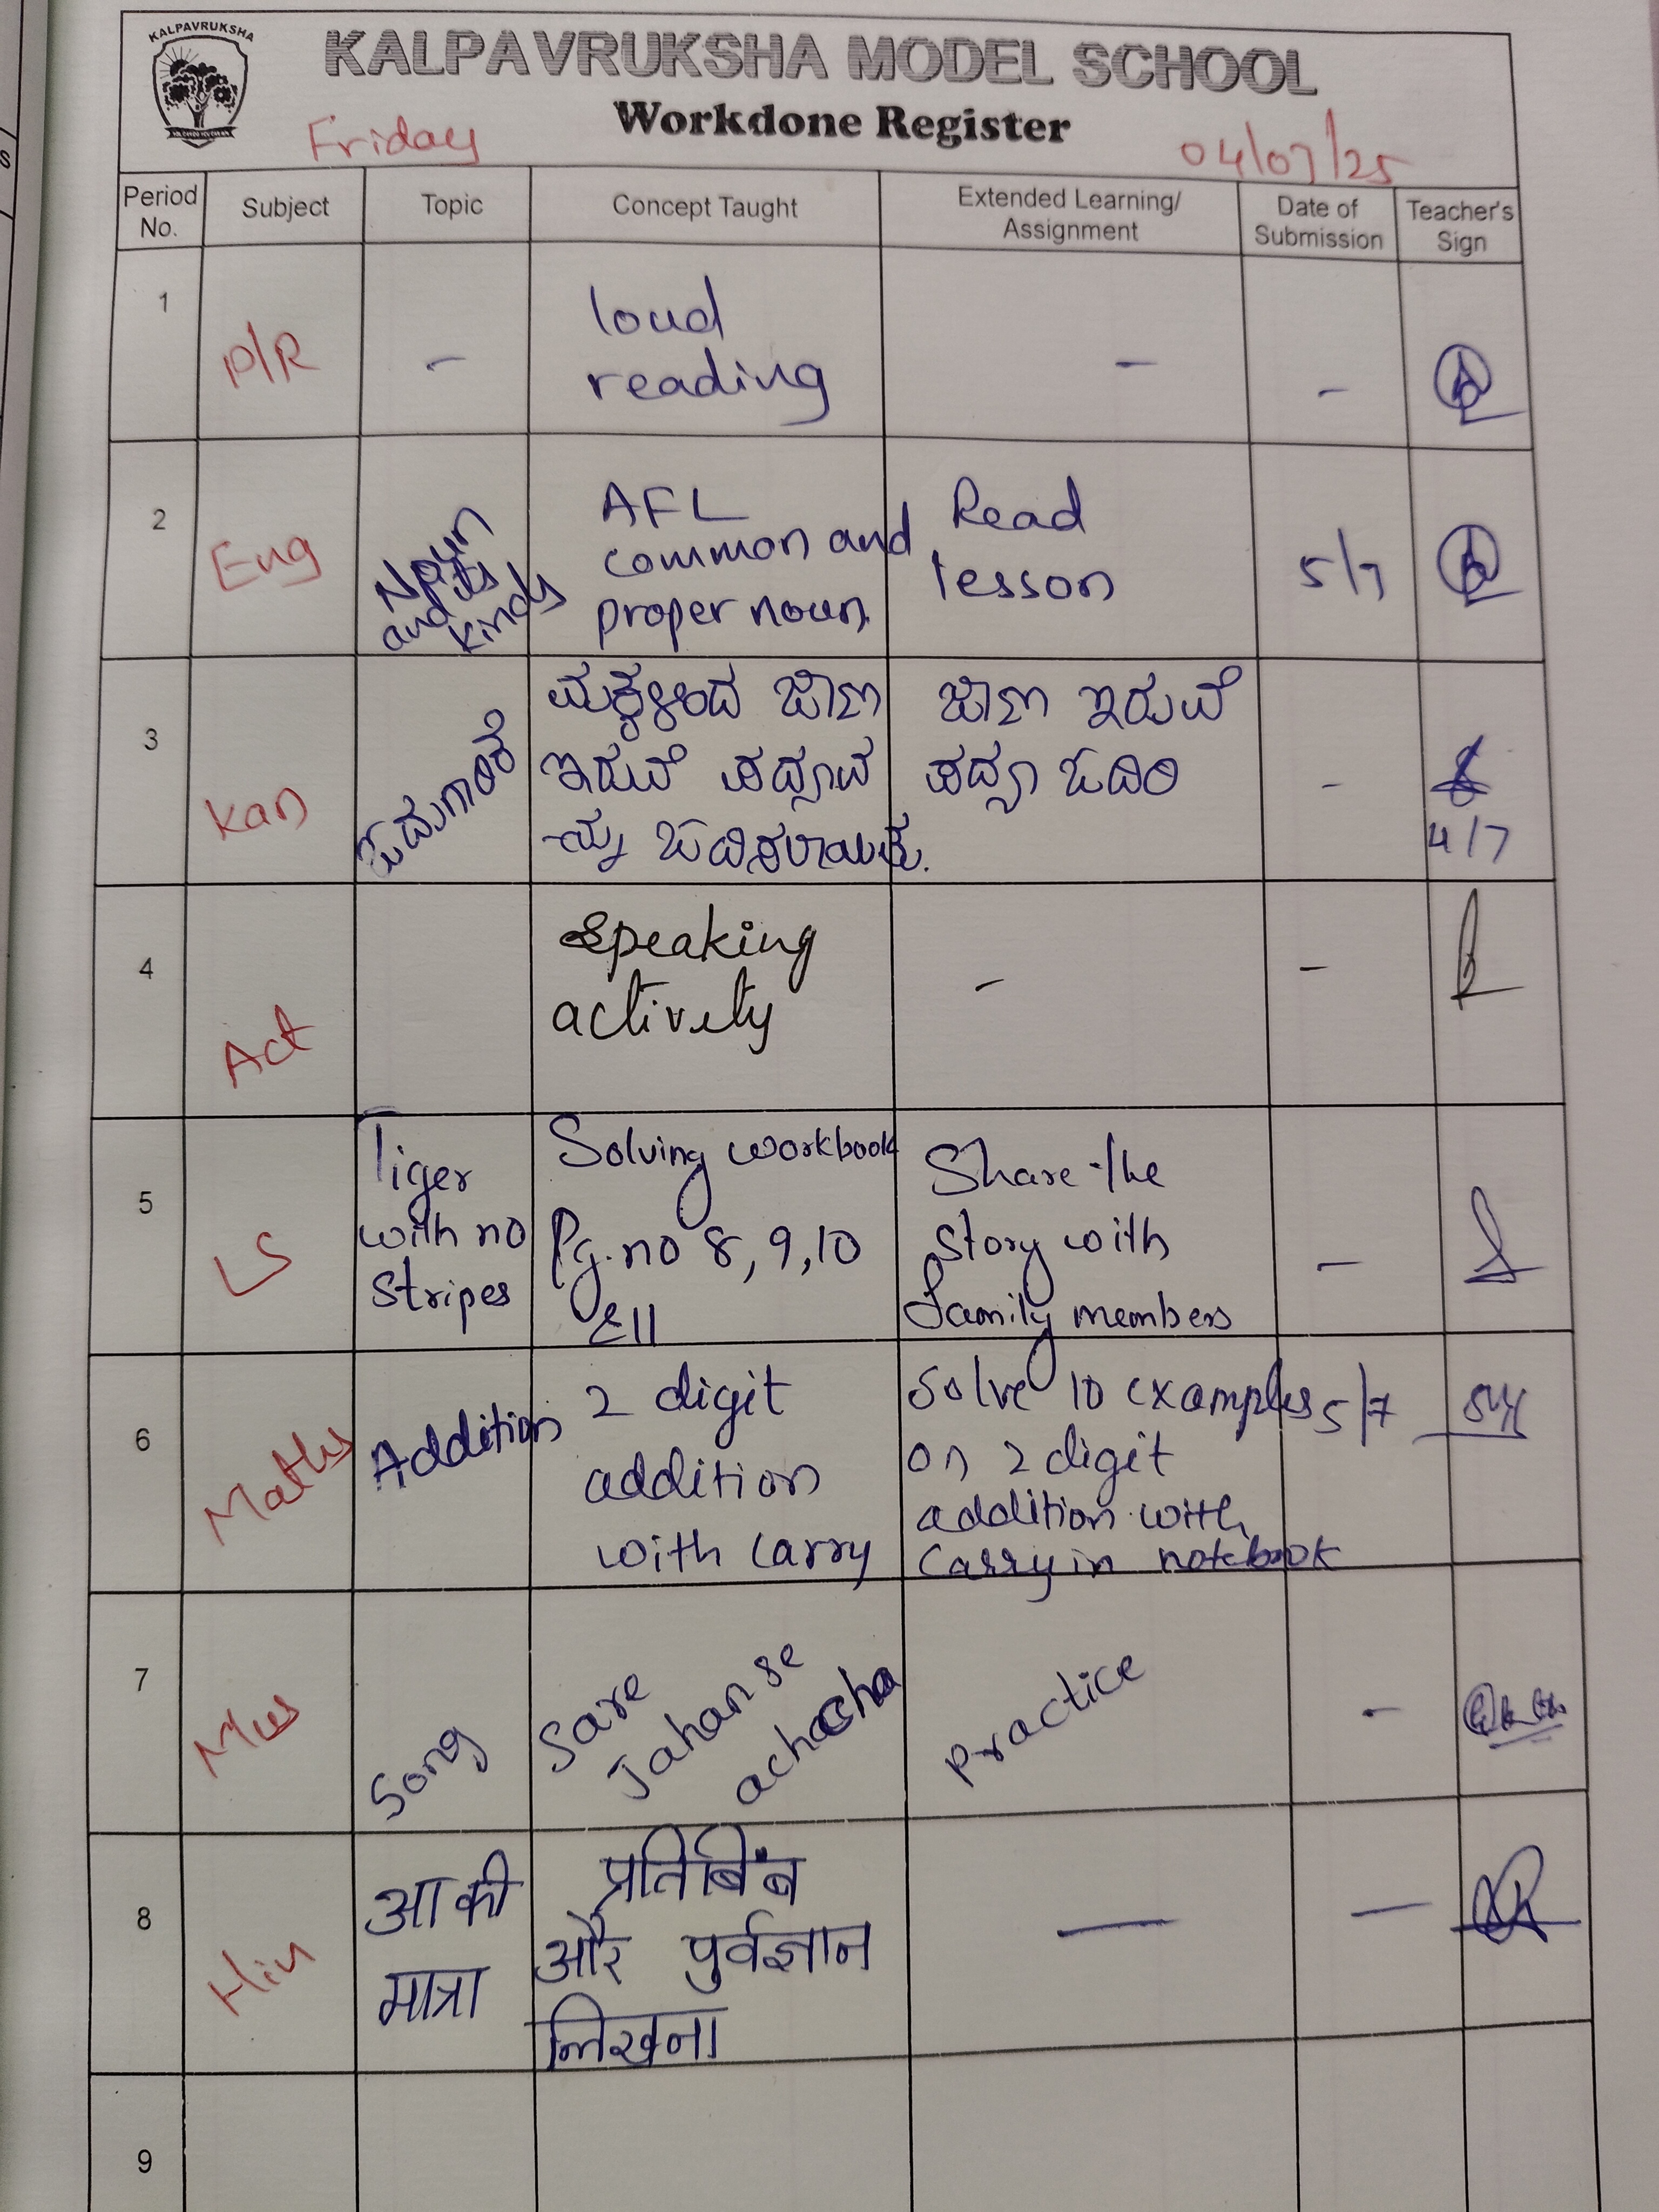 KALPAVRUKSHA
KALPAVRUKSHA MODEL SCHOOL
Workdone Register
Friday
04/07/25
Period No.
Subject
Topic
Concept Taught
Extended Learning/ Assignment
Date of Submission
Teacher's Sign
1
P/R
-
loud
reading
-
-
2
Eng
Noun
and its
kinds
AFL
common and
proper noun.
Read
lesson
5/7
3
Kan
ಮಕ್ಕಳಿಂದ ಜಾಣ
ಇರುವೆ ಪದ್ಯವ
-ನ್ನು
ಜಾಣ ಇರುವೆ
ಪದ್ಯ ಓದಿರಿ
-
4/7
4
Act
Speaking
activety
-
-
5
LS
Tiger
with no
Stripes
Solving workbook
Pg. no 8, 9, 10
&11
Share the
story with
family members
-
6
Maths
Addition
2 digit
addition
with carry
Solve 10 examples
on 2 digit
addition with
carry in notebook
5/7
7
Mus
Song
Sare
Jahan se
achaccha
Practice
-
8
Hin
आ की
मात्रा
प्रतिबिंब
और पुर्वज्ञान
लिखना
—
—
9